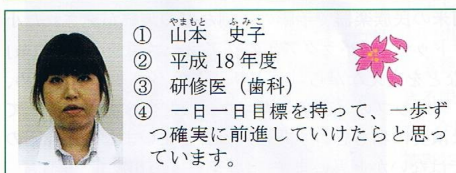 ① 山本 史子
② 平成 18 年度
③ 研修医（歯科）
④ 一日一日目標を持って、一歩ず
つ確実に前進していけたらと思っ
ています。